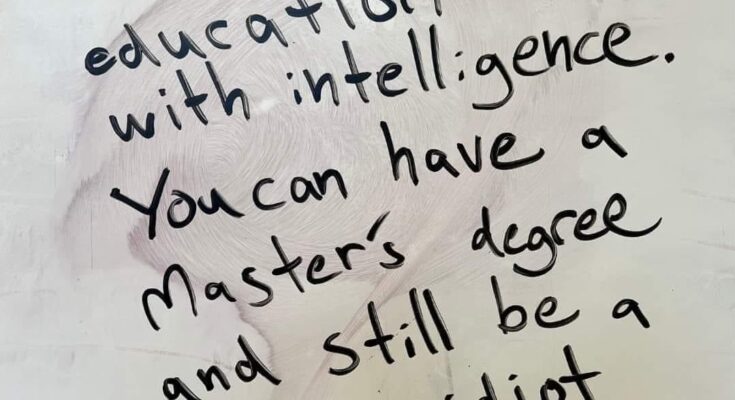 education
with intelligence.
You can have a
Master's degree
and still be a
idiot